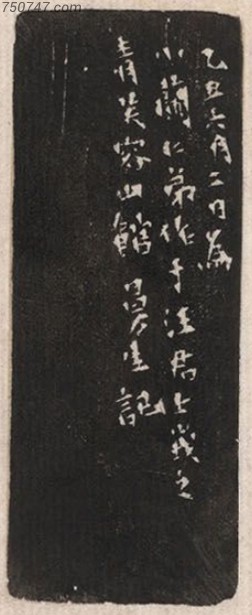 750747.com
乙丑六月二日為
小蘭仁弟作于汪君上之
青芙容山館 生記